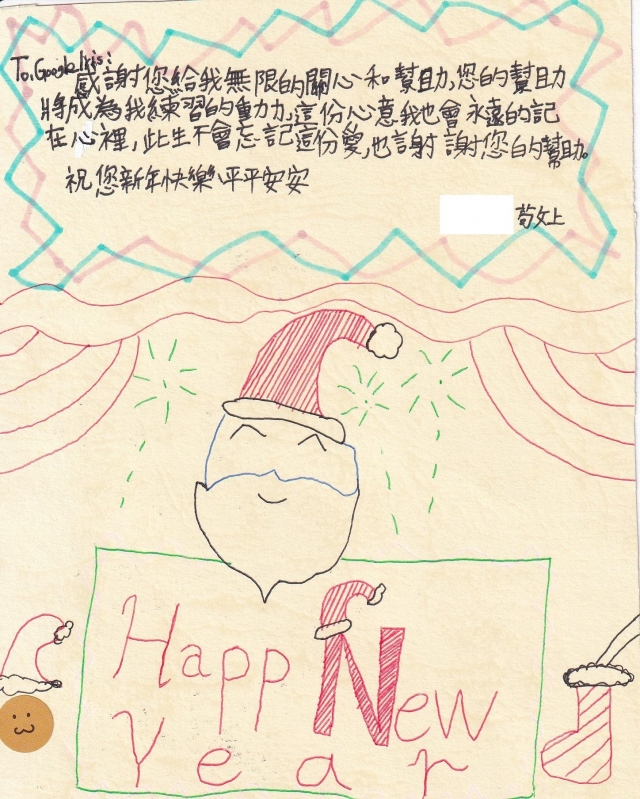 To. Google Iris:
感謝您給我無限的關心和幫助,您的幫助
將成為我練習的動力,這份心意我也會永遠的記
在心裡,此生不會忘記這份愛,也謝謝您的幫助。
祝您新年快樂、平平安安
敬上
Happ New
Year